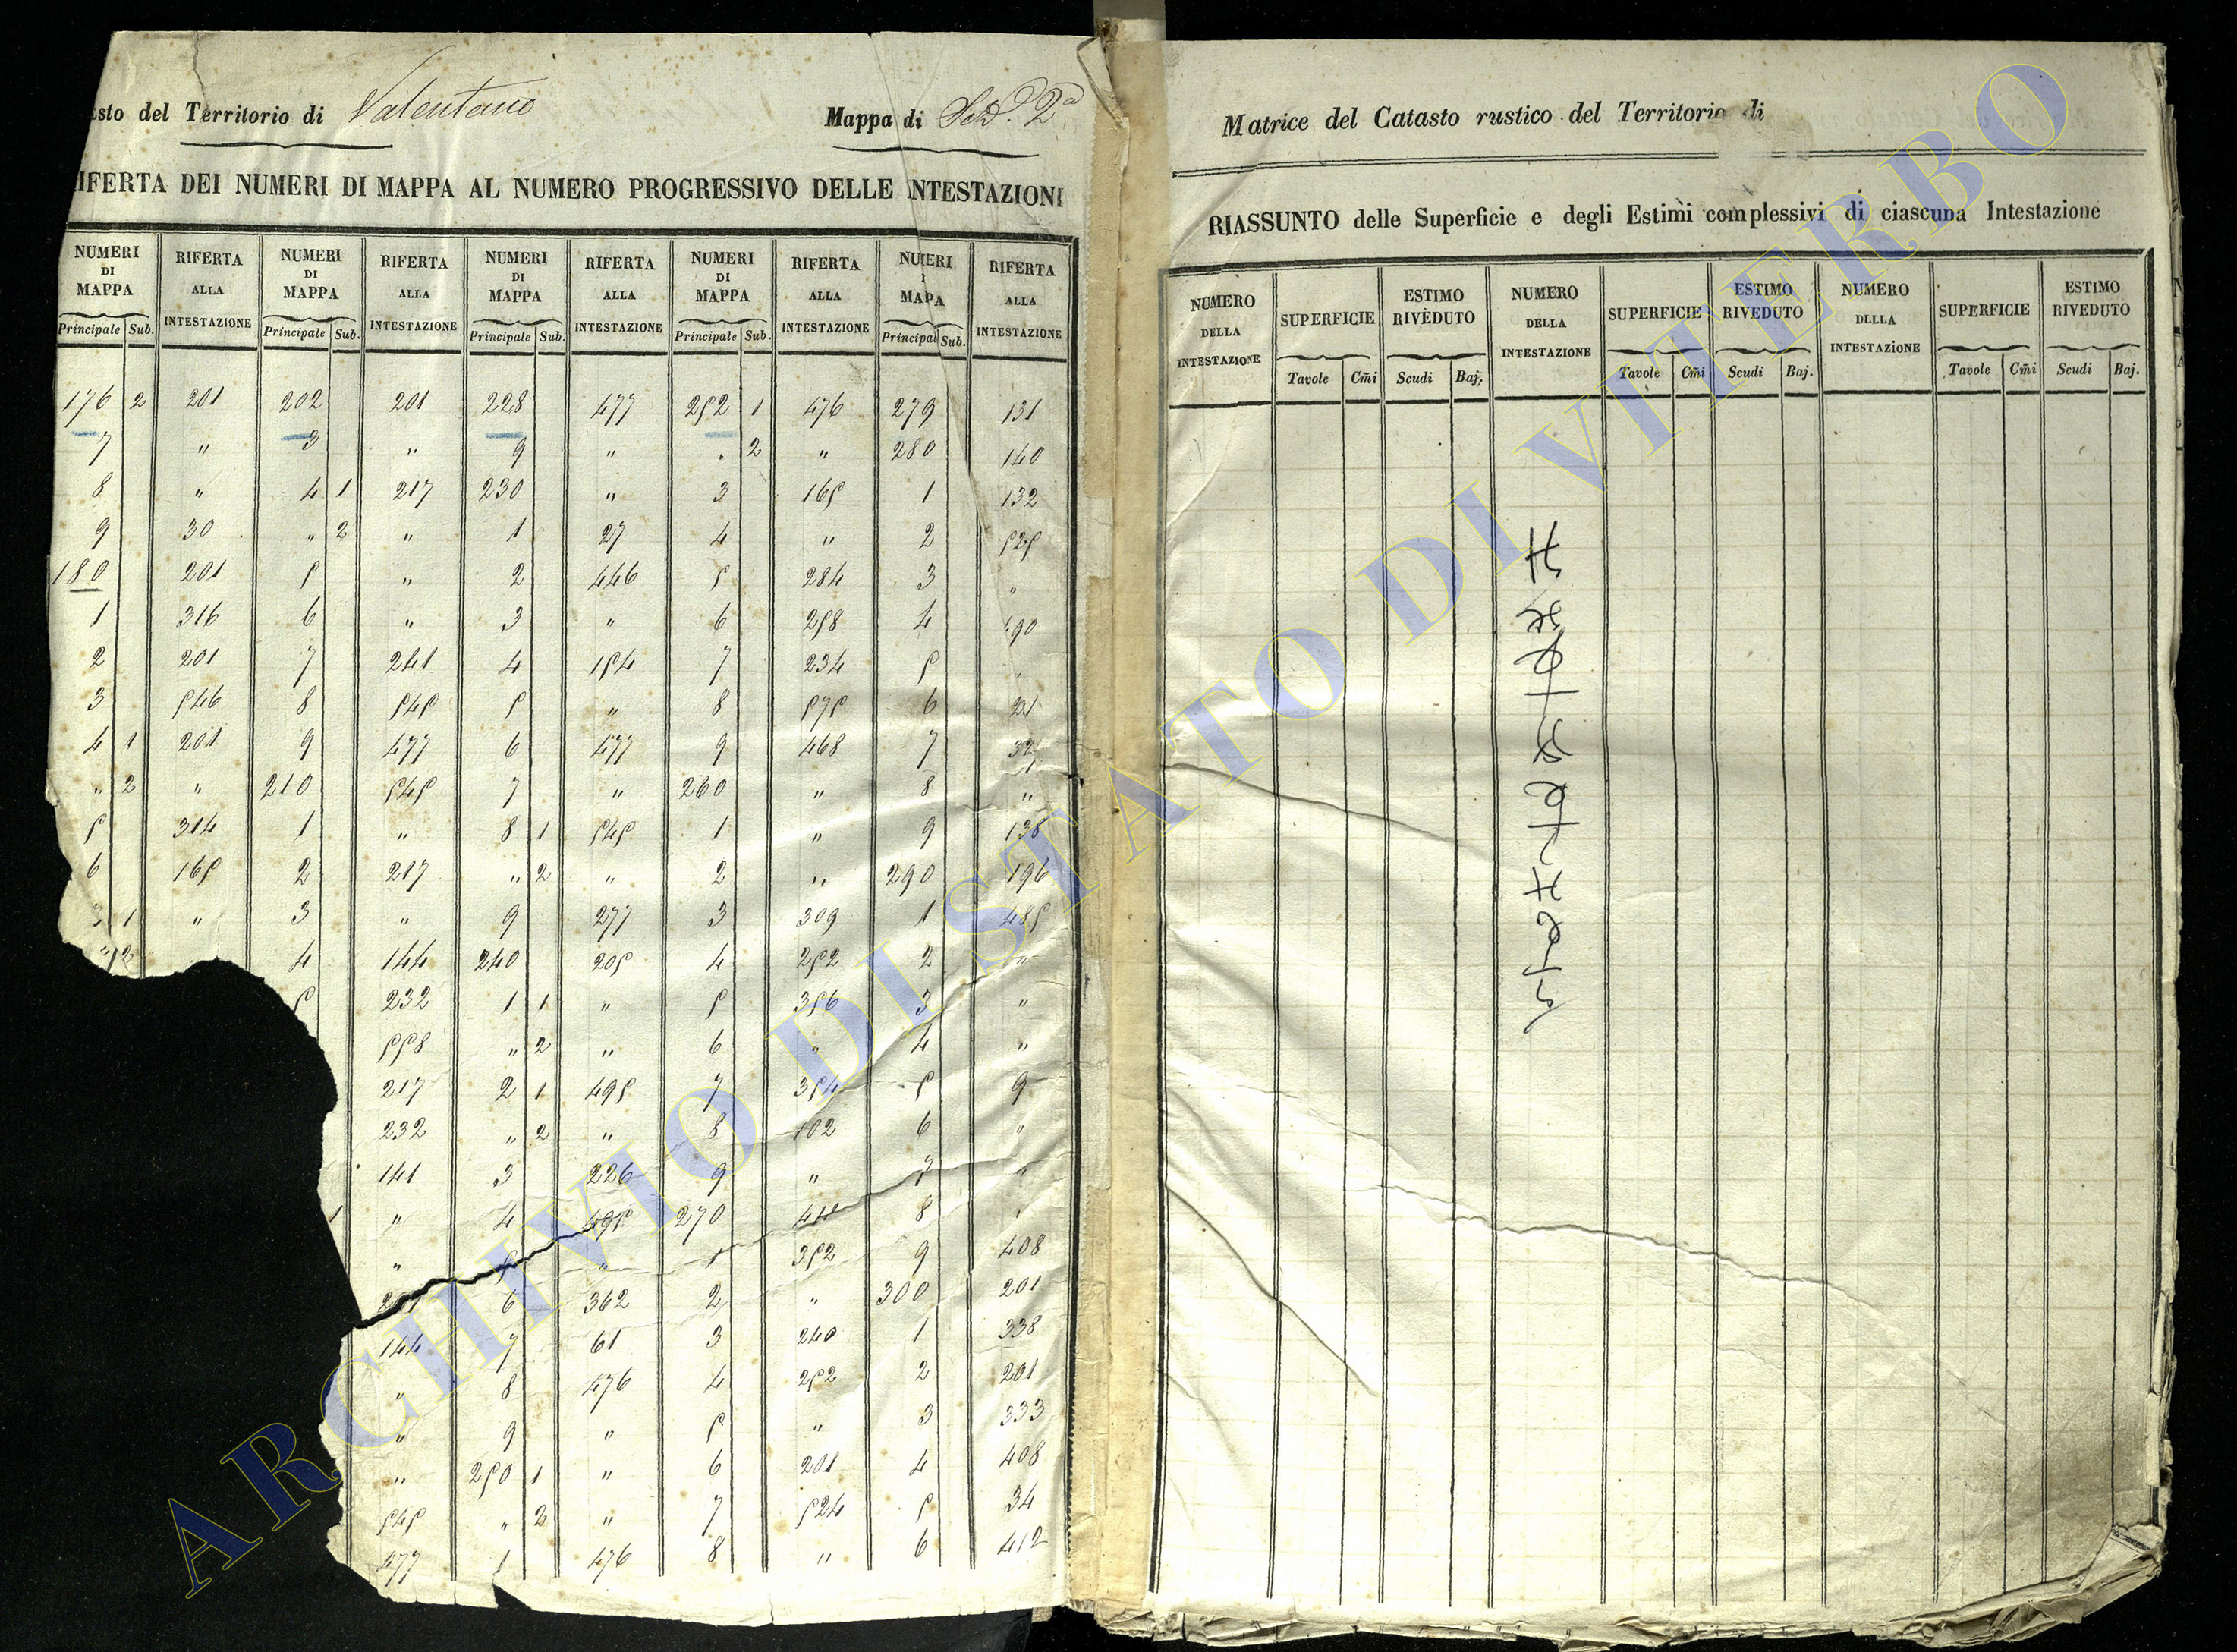 sto del Territorio di Valentano Mappa di Sez. 2a
IFERTA DEI NUMERI DI MAPPA AL NUMERO PROGRESSIVO DELLE NTESTAZIONI
NUMERI DI MAPPA RIFERTA ALLA INTESTAZIONE NUMERI DI MAPPA RIFERTA ALLA INTESTAZIONE NUMERI DI MAPPA RIFERTA ALLA INTESTAZIONE NUMERI DI MAPPA RIFERTA ALLA INTESTAZIONE RIFERTA ALLA INTESTAZIONE
Principale Sub. Principale Sub. Principale Sub. Principale Sub. Principal Sub.
176 2 201 202 201 228 477 252 1 476 279 131
7 " 3 " 9 " . 2 " 280 140
8 " 4 1 217 230 " 3 165 1 132
9 30 " 2 " 1 27 4 " 2 525
180 201 5 " 2 446 5 284 3 "
1 316 6 " 3 " 6 258 4 90
2 201 7 241 4 154 7 234 5
3 546 8 545 5 " 8 575 6 21
4 1 201 9 477 6 477 9 468 7
" 2 " 210 545 7 " 260 " 8 "
5 314 1 " 8 1 545 1 " 9 138
6 165 2 217 " 2 " 2 " 290 196
1 " 3 " 9 277 3 309 1 485
" 2 4 144 240 205 4 252 2 "
5 232 1 1 " 5 356 3 "
558 " 2 " 6 " 4 "
217 2 1 495 7 354 5 9
232 " 2 " 8 102 6 "
141 3 226 9 " 7 "
1 " 4 495 270 411 8
" 5 " 1 352 9 408
6 362 2 " 300 201
144 7 61 3 240 1 338
" 8 476 4 252 2 201
" 9 " 5 " 3 333
" 250 1 " 6 201 4 408
545 " 2 " 7 524 5 34
477 1 476 8 " 6 412
Matrice del Catasto rustico del Territorio di
RIASSUNTO delle Superficie e degli Estimi complessivi di ciascuna Intestazione
NUMERO DELLA INTESTAZIONE SUPERFICIE ESTIMO RIVEDUTO NUMERO DELLA INTESTAZIONE SUPERFICIE ESTIMO RIVEDUTO NUMERO DELLA INTESTAZIONE SUPERFICIE ESTIMO RIVEDUTO
Tavole Cmi Scudi Baj. Tavole Cmi Scudi Baj. Tavole Cmi Scudi Baj.
ARCHIVIO DI STATO DI VITERBO